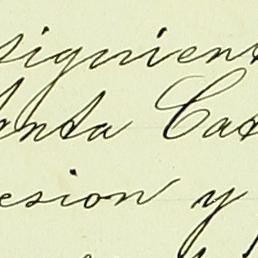 siguient
Santa Cat
esion y